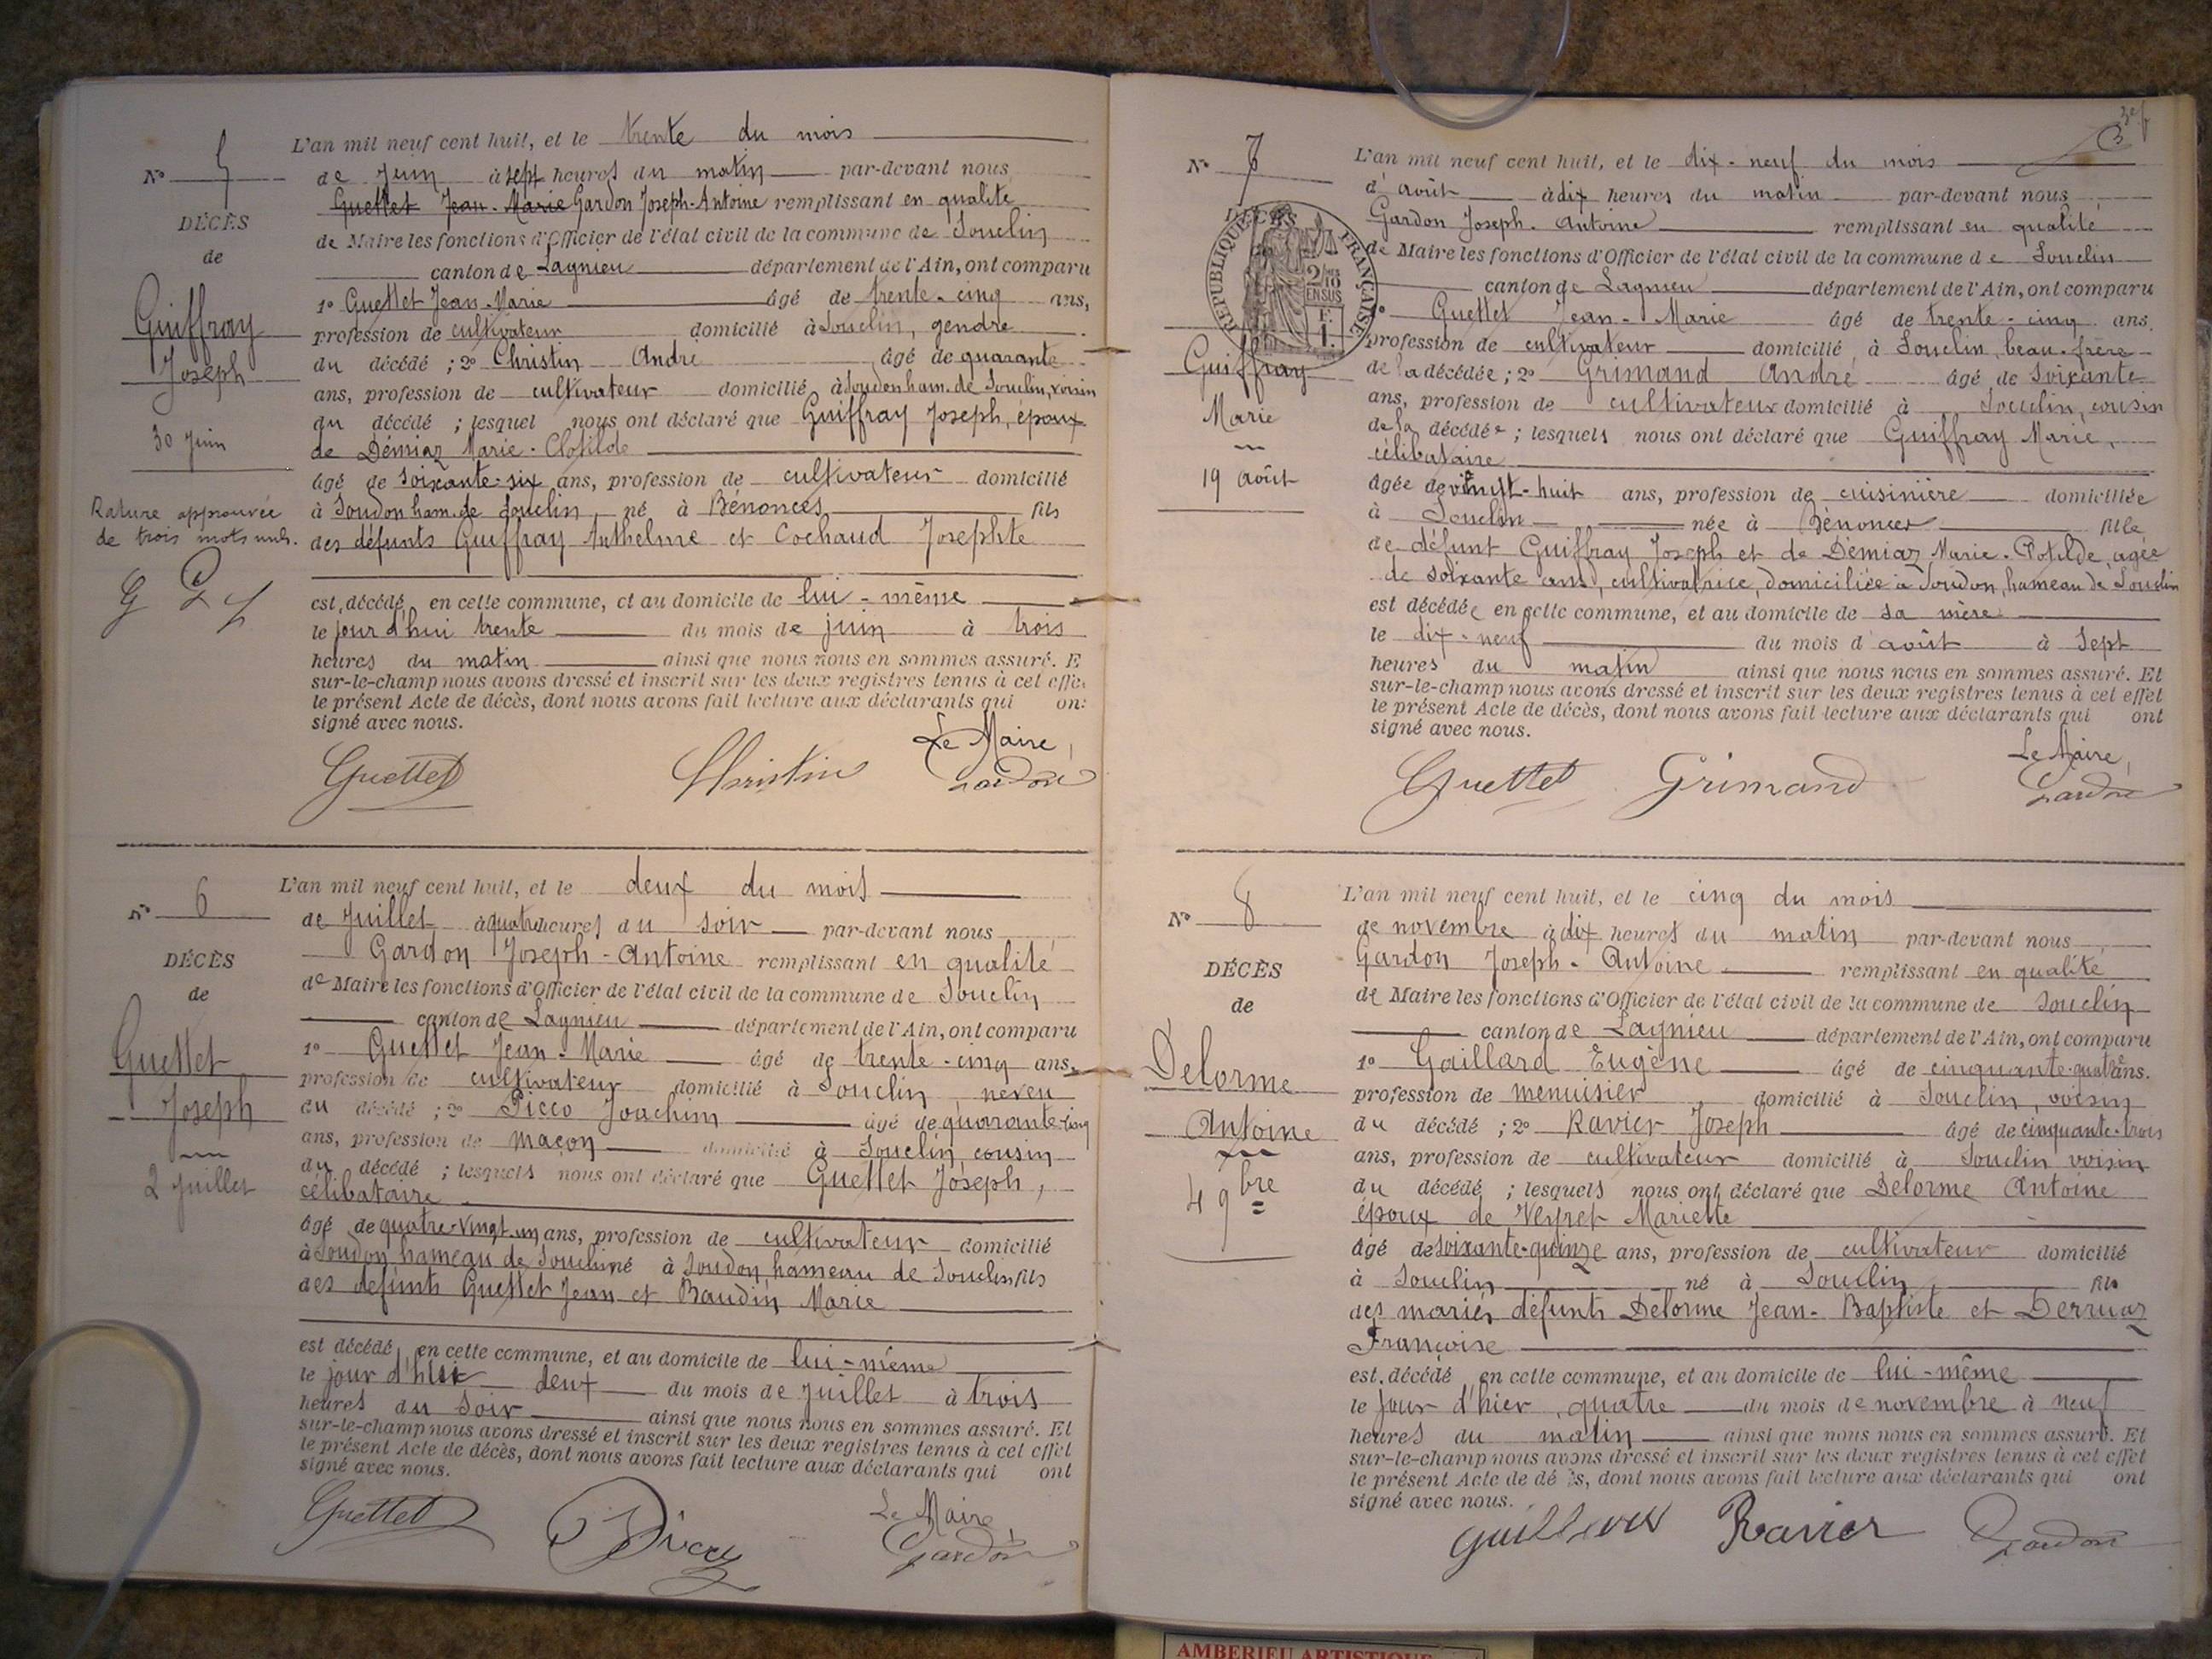 N° 5
DÉCÈS
de
Guiffray
Joseph
30 Juin
Rature approuvée
de trois mots nuls.
L'an mil neuf cent huit, et le trente du mois
de Juin à sept heures du matin par-devant nous
Guettet Jean-Marie Gardon Joseph-Antoine remplissant en qualité
de Maire les fonctions d'Officier de l'état civil de la commune de Souclin
canton de Lagnieu département de l'Ain, ont comparu
1° Guettet Jean-Marie âgé de trente-cinq ans,
profession de cultivateur domicilié à Souclin, gendre
du décédé ; 2° Christin André âgé de quarante
ans, profession de cultivateur domicilié à Soudon ham. de Souclin, voisin
du décédé ; lesquel nous ont déclaré que Guiffray Joseph, époux
de Démiaz Marie-Clotilde
âgé de soixante-six ans, profession de cultivateur domicilié
à Soudon ham. de Souclin né à Bénonces fils
des défunts Guiffray Anthelme et Cochaud Josephte
est décédé en cette commune, et au domicile de lui-même
le jour d'hui trente du mois de juin à trois
heures du matin ainsi que nous nous en sommes assuré. E
sur-le-champ nous avons dressé et inscrit sur les deux registres tenus à cet effe
le présent Acte de décès, dont nous avons fait lecture aux déclarants qui on
signé avec nous.
Le Maire,
Guettet Christin Gardon
N° 6
DÉCÈS
de
Guettet
Joseph
2 Juillet
L'an mil neuf cent huit, et le deux du mois
de Juillet à quatre heures du soir par-devant nous
Gardon Joseph-Antoine remplissant en qualité
de Maire les fonctions d'Officier de l'état civil de la commune de Souclin
canton de Lagnieu département de l'Ain, ont comparu
1° Guettet Jean-Marie âgé de trente-cinq ans,
profession de cultivateur domicilié à Souclin, neveu
du décédé ; 2° Picco Joachim âgé de quarante-cinq
ans, profession de maçon domicilié à Souclin, cousin
du décédé ; lesquels nous ont déclaré que Guettet Joseph,
célibataire
âgé de quatre-vingt-un ans, profession de cultivateur domicilié
à Soudon hameau de Souclin né à Soudon, hameau de Souclin fils
des défunts Guettet Jean et Baudin Marie
est décédé en cette commune, et au domicile de lui-même
le jour d'hui deux du mois de Juillet à trois
heures du soir ainsi que nous nous en sommes assuré. Et
sur-le-champ nous avons dressé et inscrit sur les deux registres tenus à cet effet
le présent Acte de décès, dont nous avons fait lecture aux déclarants qui ont
signé avec nous.
Le Maire,
Guettet Picco Gardon
N° 7
DÉCÈS
RÉPUBLIQUE FRANÇAISE
2/10 EN SUS
Guiffray
Marie
19 août
L'an mil neuf cent huit, et le dix-neuf du mois
d'août à dix heures du matin par-devant nous
Gardon Joseph-Antoine remplissant en qualité
de Maire les fonctions d'Officier de l'état civil de la commune de Souclin
canton de Lagnieu département de l'Ain, ont comparu
1° Guettet Jean-Marie âgé de trente-cinq ans,
profession de cultivateur domicilié à Souclin, beau-frère
de la décédée ; 2° Grimand André âgé de soixante
ans, profession de cultivateur domicilié à Souclin, cousin
de la décédée ; lesquels nous ont déclaré que Guiffray Marie,
célibataire
âgée de vingt-huit ans, profession de cuisinière domiciliée
à Souclin née à Bénonces fille
de défunt Guiffray Joseph et de Démiaz Marie-Clotilde, agée
de soixante ans, cultivatrice, domiciliée à Soudon, hameau de Souclin
est décédée en cette commune, et au domicile de sa mère
le dix-neuf du mois d'août à sept
heures du matin ainsi que nous nous en sommes assuré. Et
sur-le-champ nous avons dressé et inscrit sur les deux registres tenus à cet effet
le présent Acte de décès, dont nous avons fait lecture aux déclarants qui ont
signé avec nous.
Le Maire,
Guettet Grimand Gardon
N° 8
DÉCÈS
de
Delorme
Antoine
4 9bre
L'an mil neuf cent huit, et le cinq du mois
de novembre à dix heures du matin par-devant nous
Gardon Joseph-Antoine remplissant en qualité
de Maire les fonctions d'Officier de l'état civil de la commune de Souclin
canton de Lagnieu département de l'Ain, ont comparu
1° Gaillard Eugène âgé de cinquante-quatre ans.
profession de menuisier domicilié à Souclin, voisin
du décédé ; 2° Ravier Joseph âgé de cinquante-trois
ans, profession de cultivateur domicilié à Souclin voisin
du décédé ; lesquels nous ont déclaré que Delorme Antoine
époux de Veyret Mariette
âgé de soixante-quinze ans, profession de cultivateur domicilié
à Souclin né à Souclin fils
des mariés défunts Delorme Jean-Baptiste et Derruaz
Françoise
est décédé en cette commune, et au domicile de lui-même
le jour d'hier, quatre du mois de novembre à neuf
heures du matin ainsi que nous nous en sommes assuré. Et
sur-le-champ nous avons dressé et inscrit sur les deux registres tenus à cet effet
le présent Acte de dé s, dont nous avons fait lecture aux déclarants qui ont
signé avec nous.
Ravier Gardon
AMBERIEU ARTISTIQUE